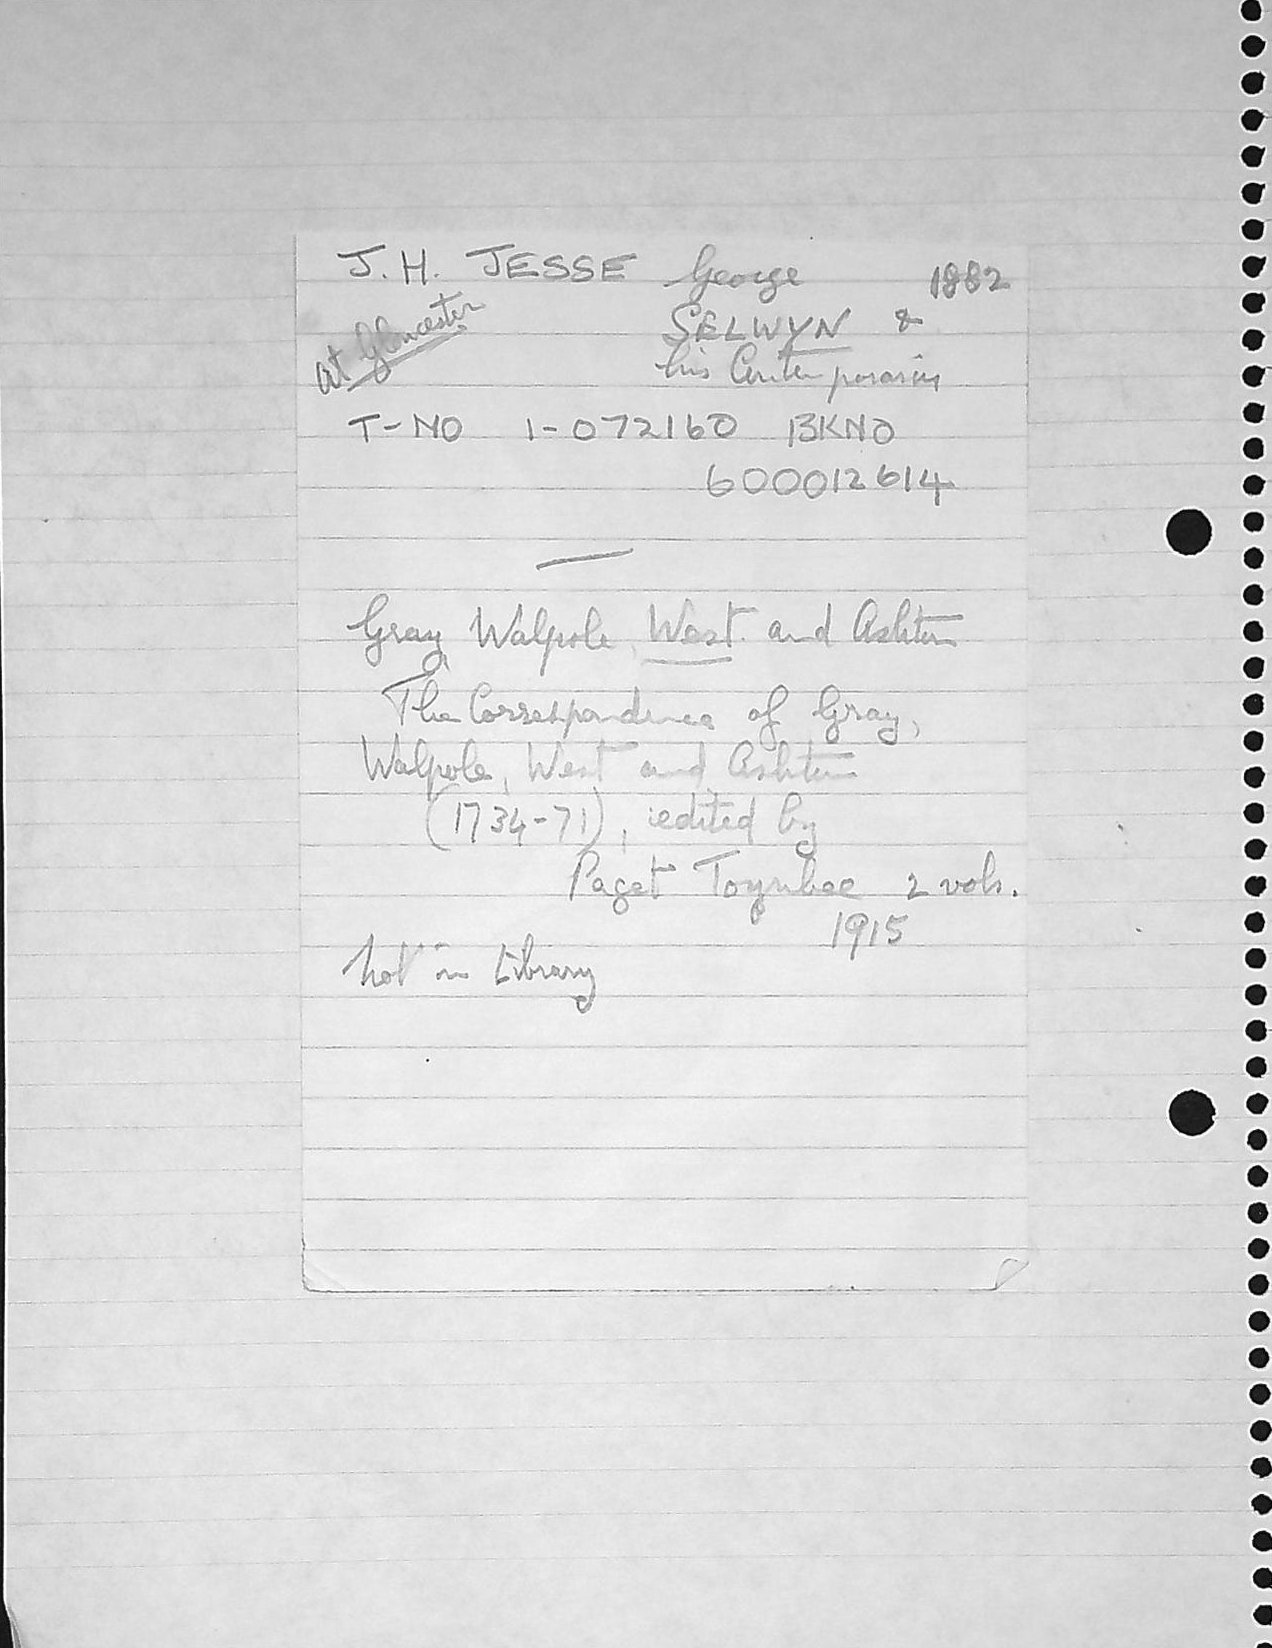 J. H. JESSE George 1882
SELWYN &
his Contemporaries
at Gloucester
T-NO 1-072160 BKNO
600012614
Gray, Walpole, West. and Ashton
The Correspondence of Gray,
Walpole, West and Ashton
(1734-71), edited by
Paget Toynbee 2 vols.
1915
not in Library